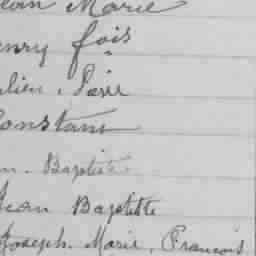 Jean Marie
Henry fois
Julien
Constant
Jean Baptiste
Jean Baptiste
Joseph. Marie, Francois